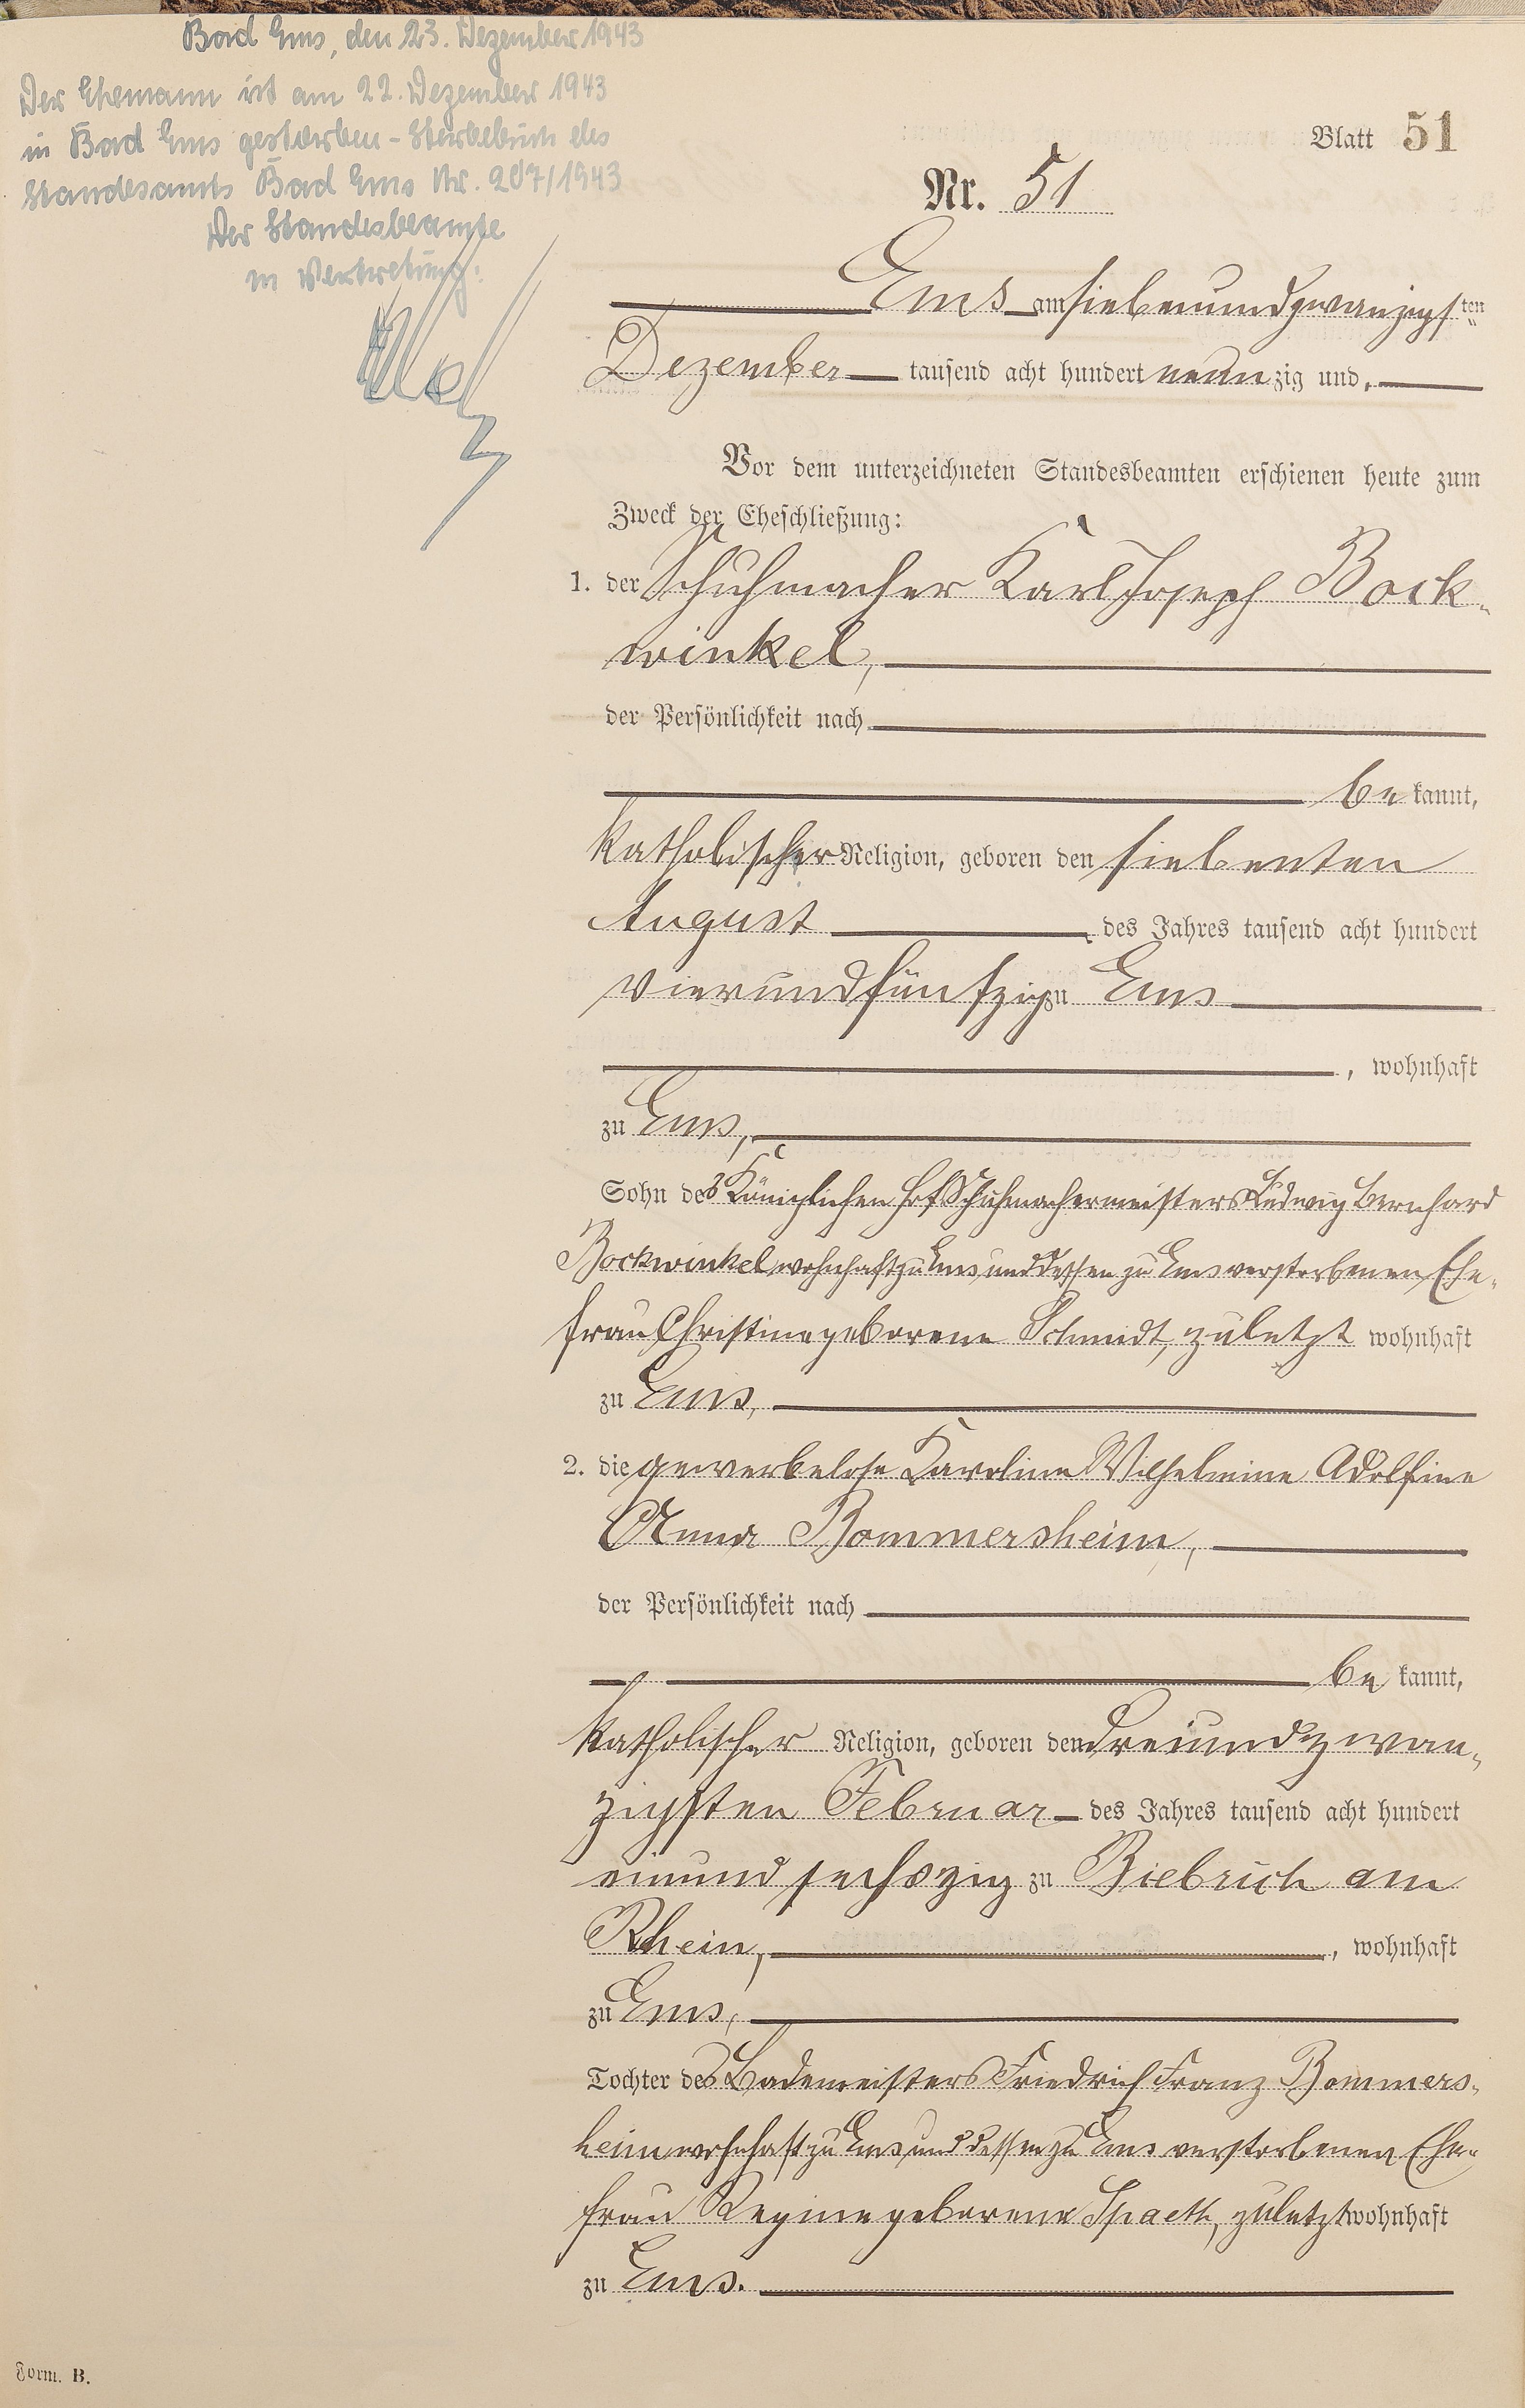 Bad Ems, den 23. Dezember 1943
Der Ehemann ist am 22. Dezember 1943
in Bad Ems gestorben - Sterbebuch des
Standesamts Bad Ems Nr. 207/1943
Der Standesbeamte
in Vertretung:
Blatt 51
Nr. 51
Ems am siebenundzwanzigsten
Dezember tausend acht hundert neunzig und
Vor dem unterzeichneten Standesbeamten erschienen heute zum
Zweck der Eheschließung:
1. der Schuhmacher Karl Joseph Bock-
winkel,
der Persönlichkeit nach
bekannt,
katholischer Religion, geboren den siebenten
August des Jahres tausend acht hundert
vierundfünfzig zu Ems
, wohnhaft
zu Ems,
Sohn des Königlichen Hofschuhmachermeisters Ludwig Bernhard
Bockwinkel wohnhaft zu Ems und dessen zu Ems verstorbenen Ehe-
frau Christine geborene Schmidt, zuletzt wohnhaft
zu Ems,
2. die gewerbelose Karoline Wilhelmine Adolfine
Anna Bommersheim,
der Persönlichkeit nach
bekannt,
katholischer Religion, geboren den dreiundzwan-
zigsten Februar des Jahres tausend acht hundert
einundsechszig zu Biebrich am
Rhein, , wohnhaft
zu Ems,
Tochter des Bademeisters Friedrich Franz Bommers-
heim wohnhaft zu Ems und dessen zu Ems verstorbenen Ehe-
frau Regine geborene Spaeth, zuletzt wohnhaft
zu Ems.
Form. B.